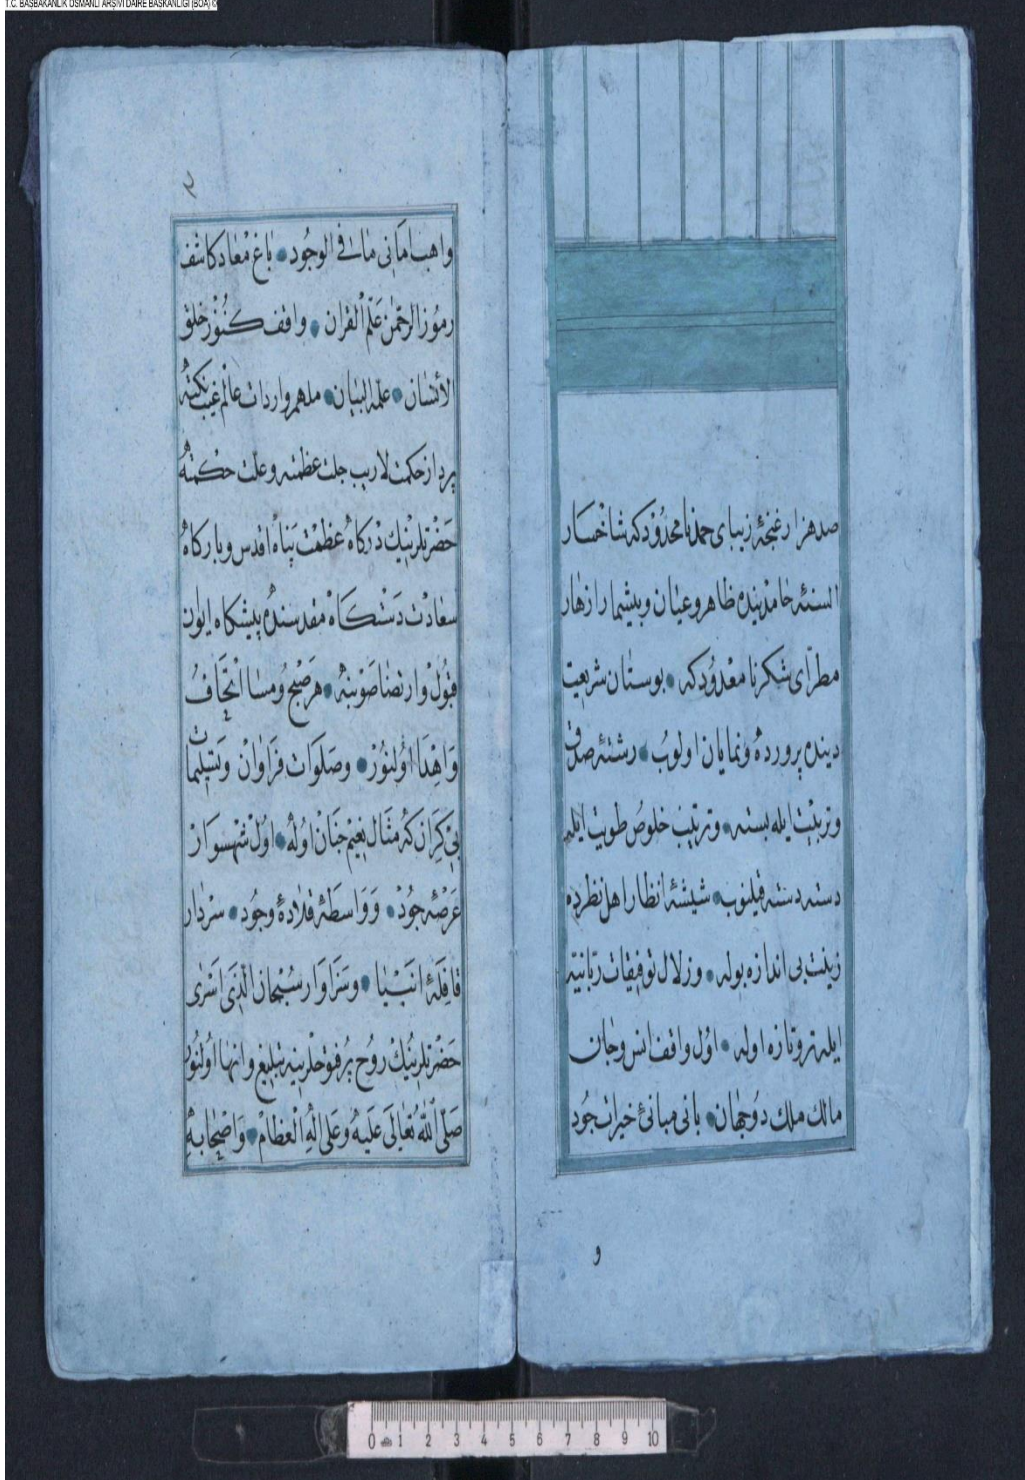 T.C. BAŞBAKANLIK OSMANLI ARŞİVİ DAİRE BAŞKANLIĞI (BOA)
صد هزار غنچهٔ زیبای حمد نامحدود که شاخسار
السنهٔ حامدینده ظاهر و عیان و بیشمار ازهار
مطرّای شکر نامعدود که بوستان شریعت
دینده پرورده و نمایان اولوب رشتهٔ صدق
و تربیت ایله بسته و ترتیب خلوص طویت ایله
دسته دسته قیلنوب شیشهٔ انظار اهل نظرده
زینت بی اندازه بوله و زلال توفیقات ربّانیه
ایله تر و تازه اوله اول واقف انس و جان
مالك ملك دو جهان بانی مبانئ خیرات جود
و
٢
واهب امانی مات فی الوجود باغ معاد کاشف
رموز الرحمن علّم القران واقف کنوز خلق
الأنسان علمه البیان ملهم واردات عالم غیب نکته
پرداز حکمت لاریب جلت عظمته وعلت حکمته
حضرتلرینك درکاه عظمت پناه اقدس و بارکاه
سعادت دستکاه مقدسنده پیشکاه ایوان
قبول وارتضا صوبنه هر صبح و مسا اتحاف
و اهدا اولنور و صلوات فراوان و تسلیمات
بی کران که مثال نعیم جنان اوله اول شهسوار
عرصهٔ جود و واسطهٔ قلادهٔ وجود سردار
قافلهٔ انبیا و سزاوار سبحان الذی اسری
حضرتلرینك روح پرفتوحلرینه تبلیغ و انها اولنور
صلی الله تعالی علیه و علی اله العظام و اصحابه